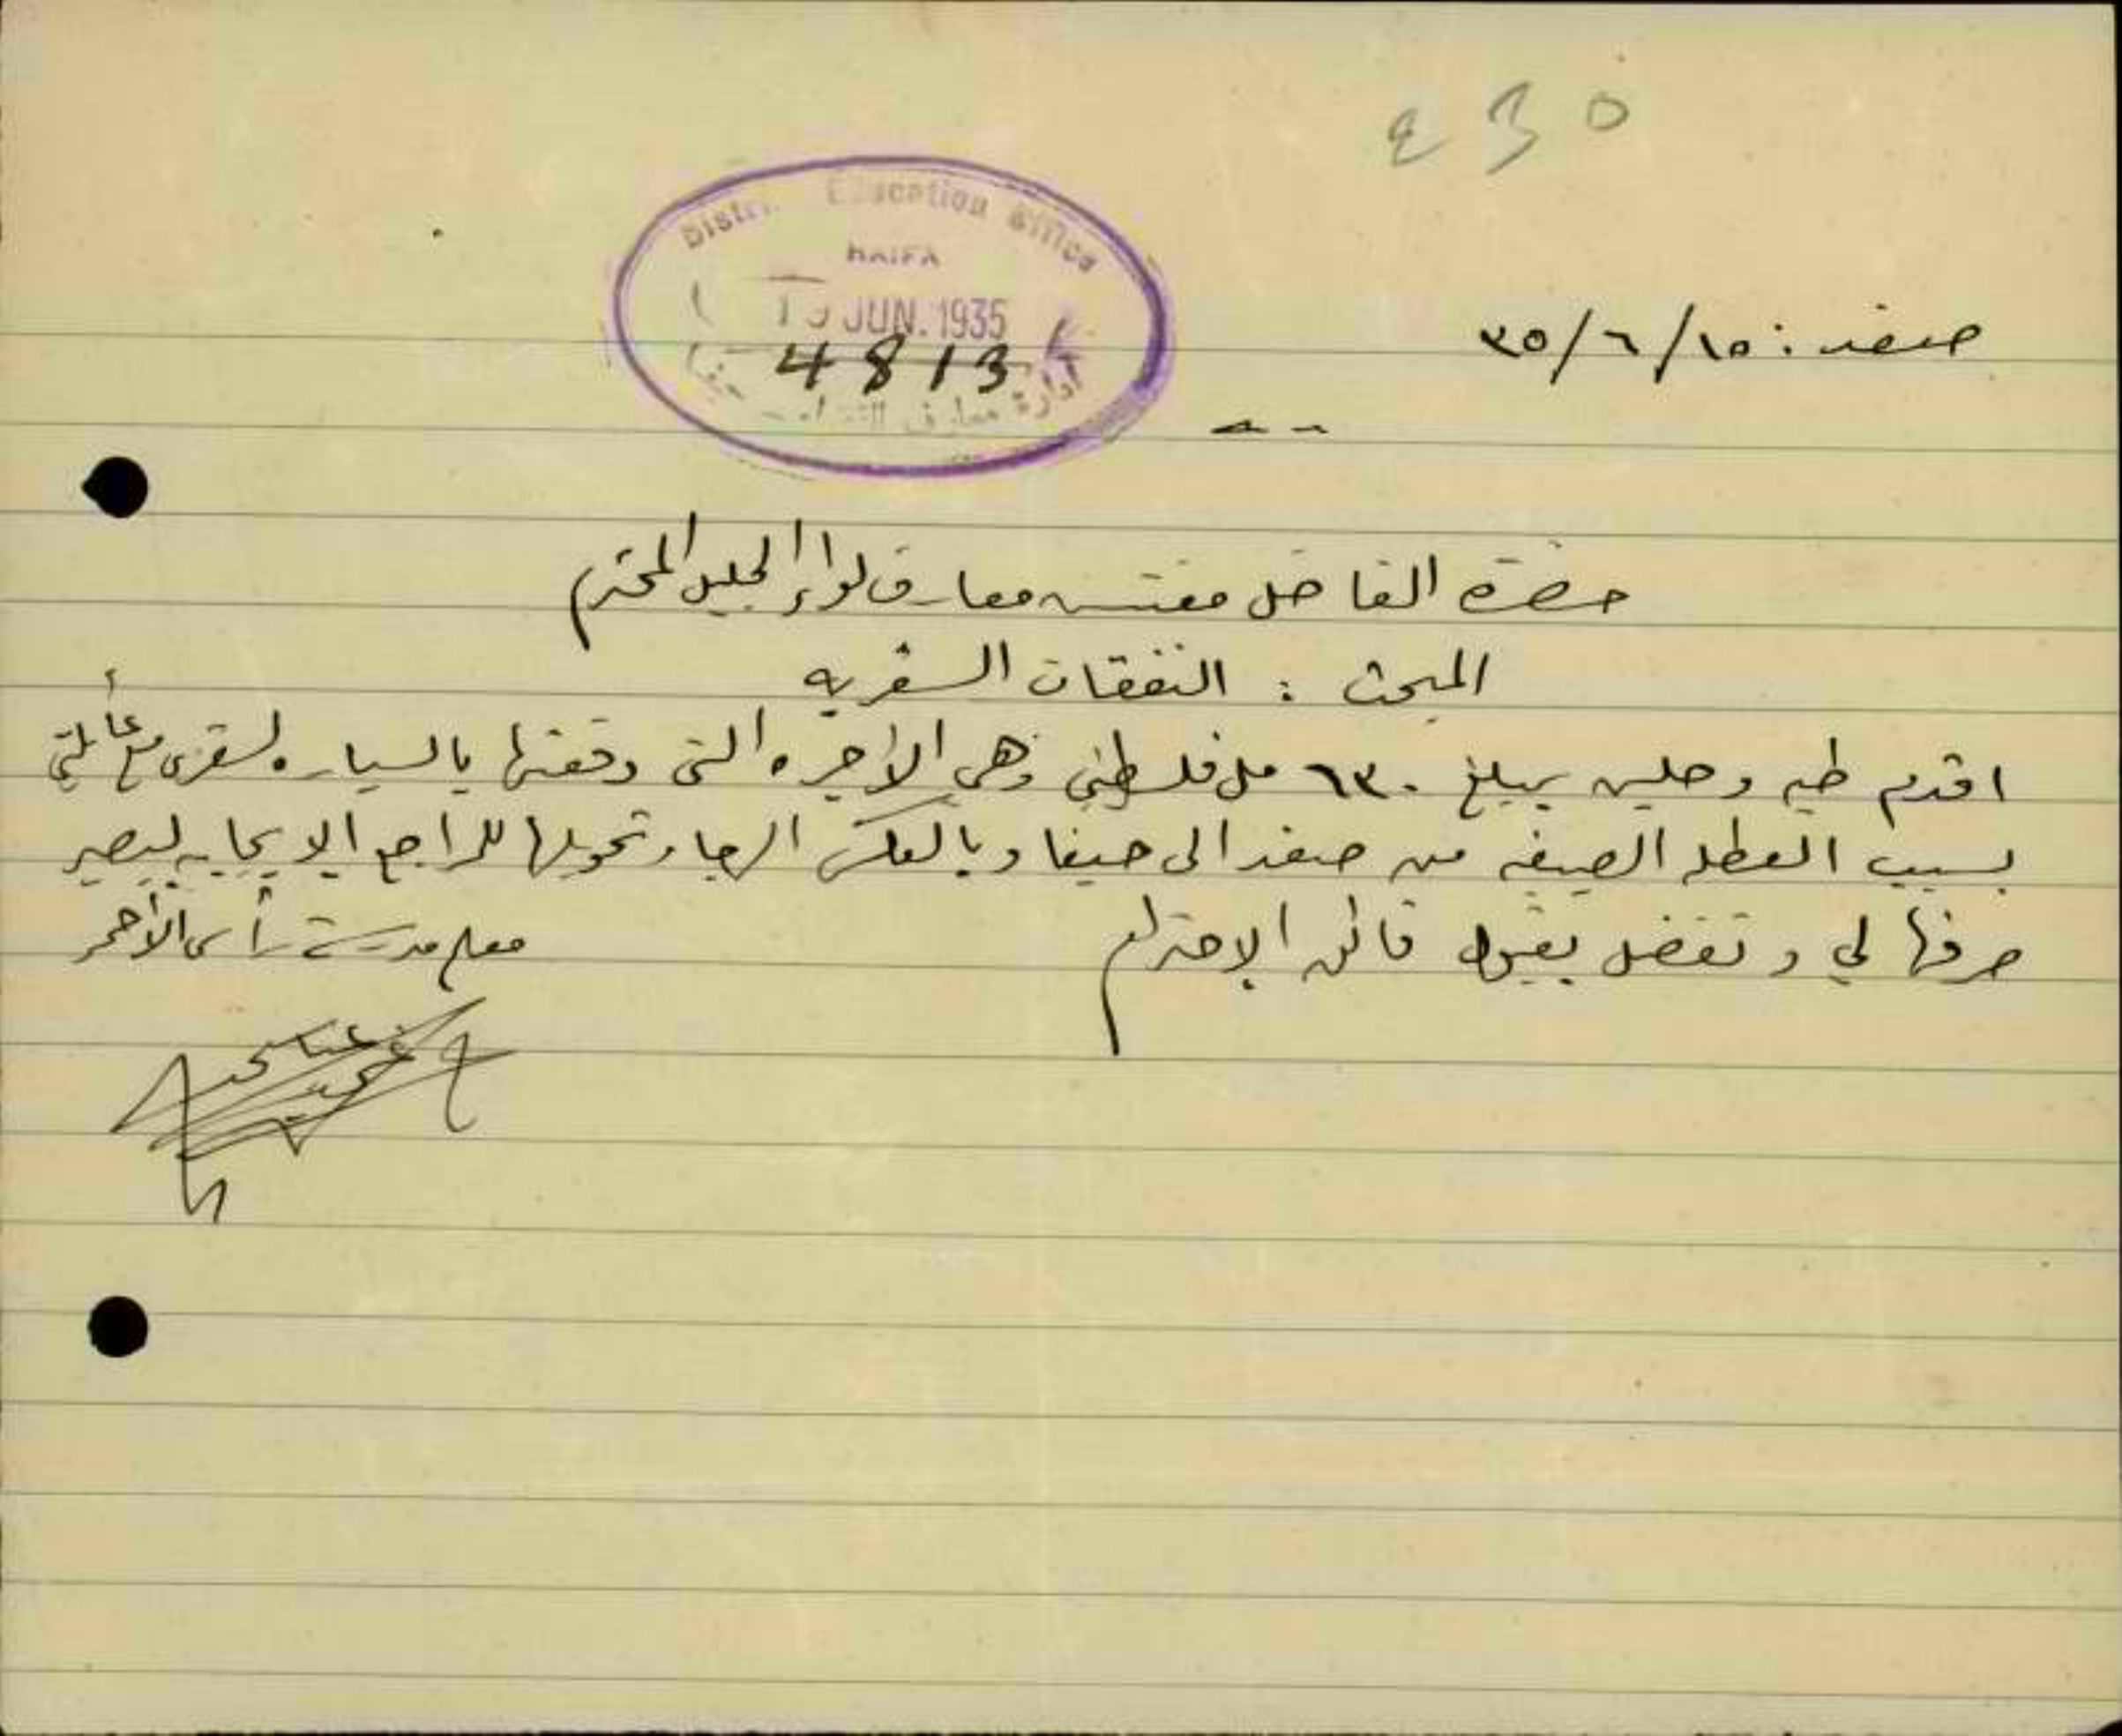 ٤٣٥
District Education Office
HAIFA
19 JUN. 1935
4813
ادارة معارف اللواء حيفا
صفد : ١٥/٦/٣٥
حضرة الفاضل مفتش معارف لواء الجليل المحترم
المبحث : النفقات السفريه
اقدم طيه وصلين بمبلغ ٦٣٠ مل فلسطيني وهي الأجره التى دفعتها بالسياره لسفرى مع عائلتي
بسبب العطله الصيفيه من صفد الى حيفا وبالعكس الرجاء تحويلها للمراجع الايجابيه ليصير
صرفها لي وتفضل بقبول فائق الاحترام
معلم مدرسة رأس الأحمر